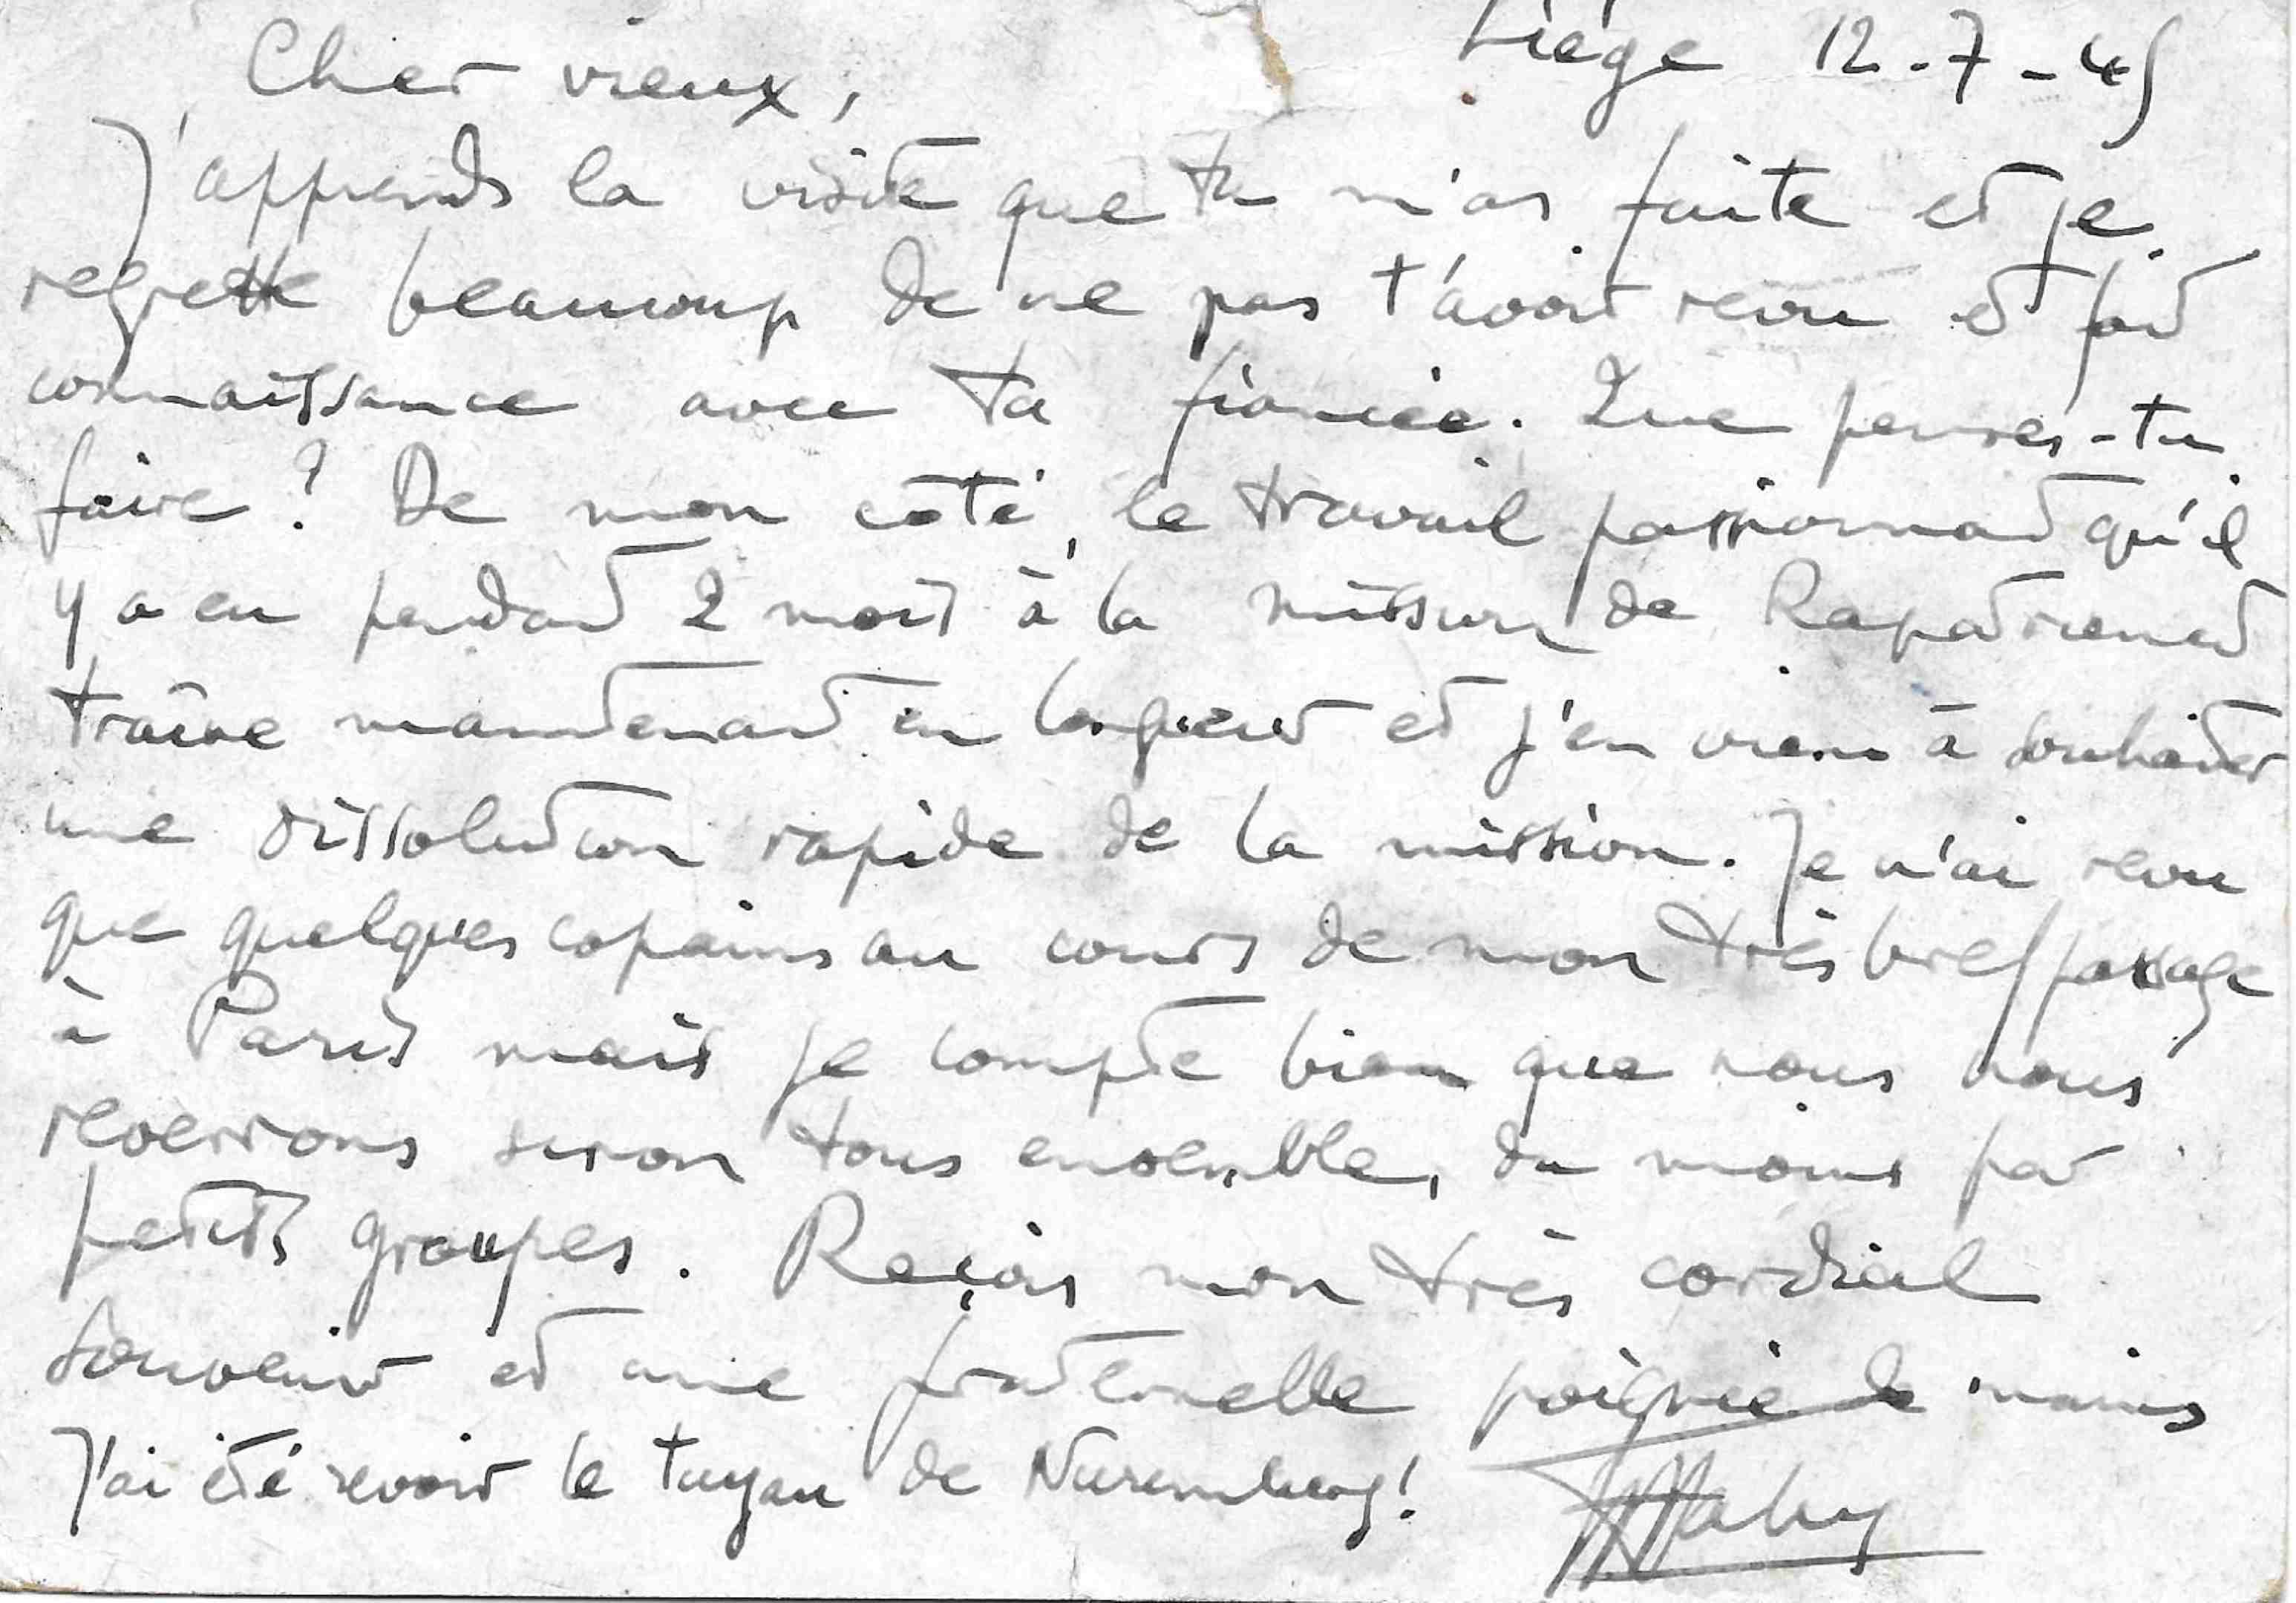 Liège 12-7-45
Cher vieux,
J'apprends la visite que tu m'as faite et je
regrette beaucoup de ne pas t'avoir revu et fait
connaissance avec ta fiancée. Que penses-tu
faire ? De mon côté, le travail passionnant qu'il
y a eu pendant 2 mois à la mission de Rapatriement
traîne maintenant en longueur et j'en viens à souhaiter
une dissolution rapide de la mission. Je n'ai revu
que quelques copains au cours de mon très bref passage
à Paris mais je compte bien que nous nous
reverrons sinon tous ensemble, du moins par
petits groupes. Reçois mon très cordial
souvenir et une fraternelle poignée de mains
J'ai été revoir le tuyau de Nuremberg!